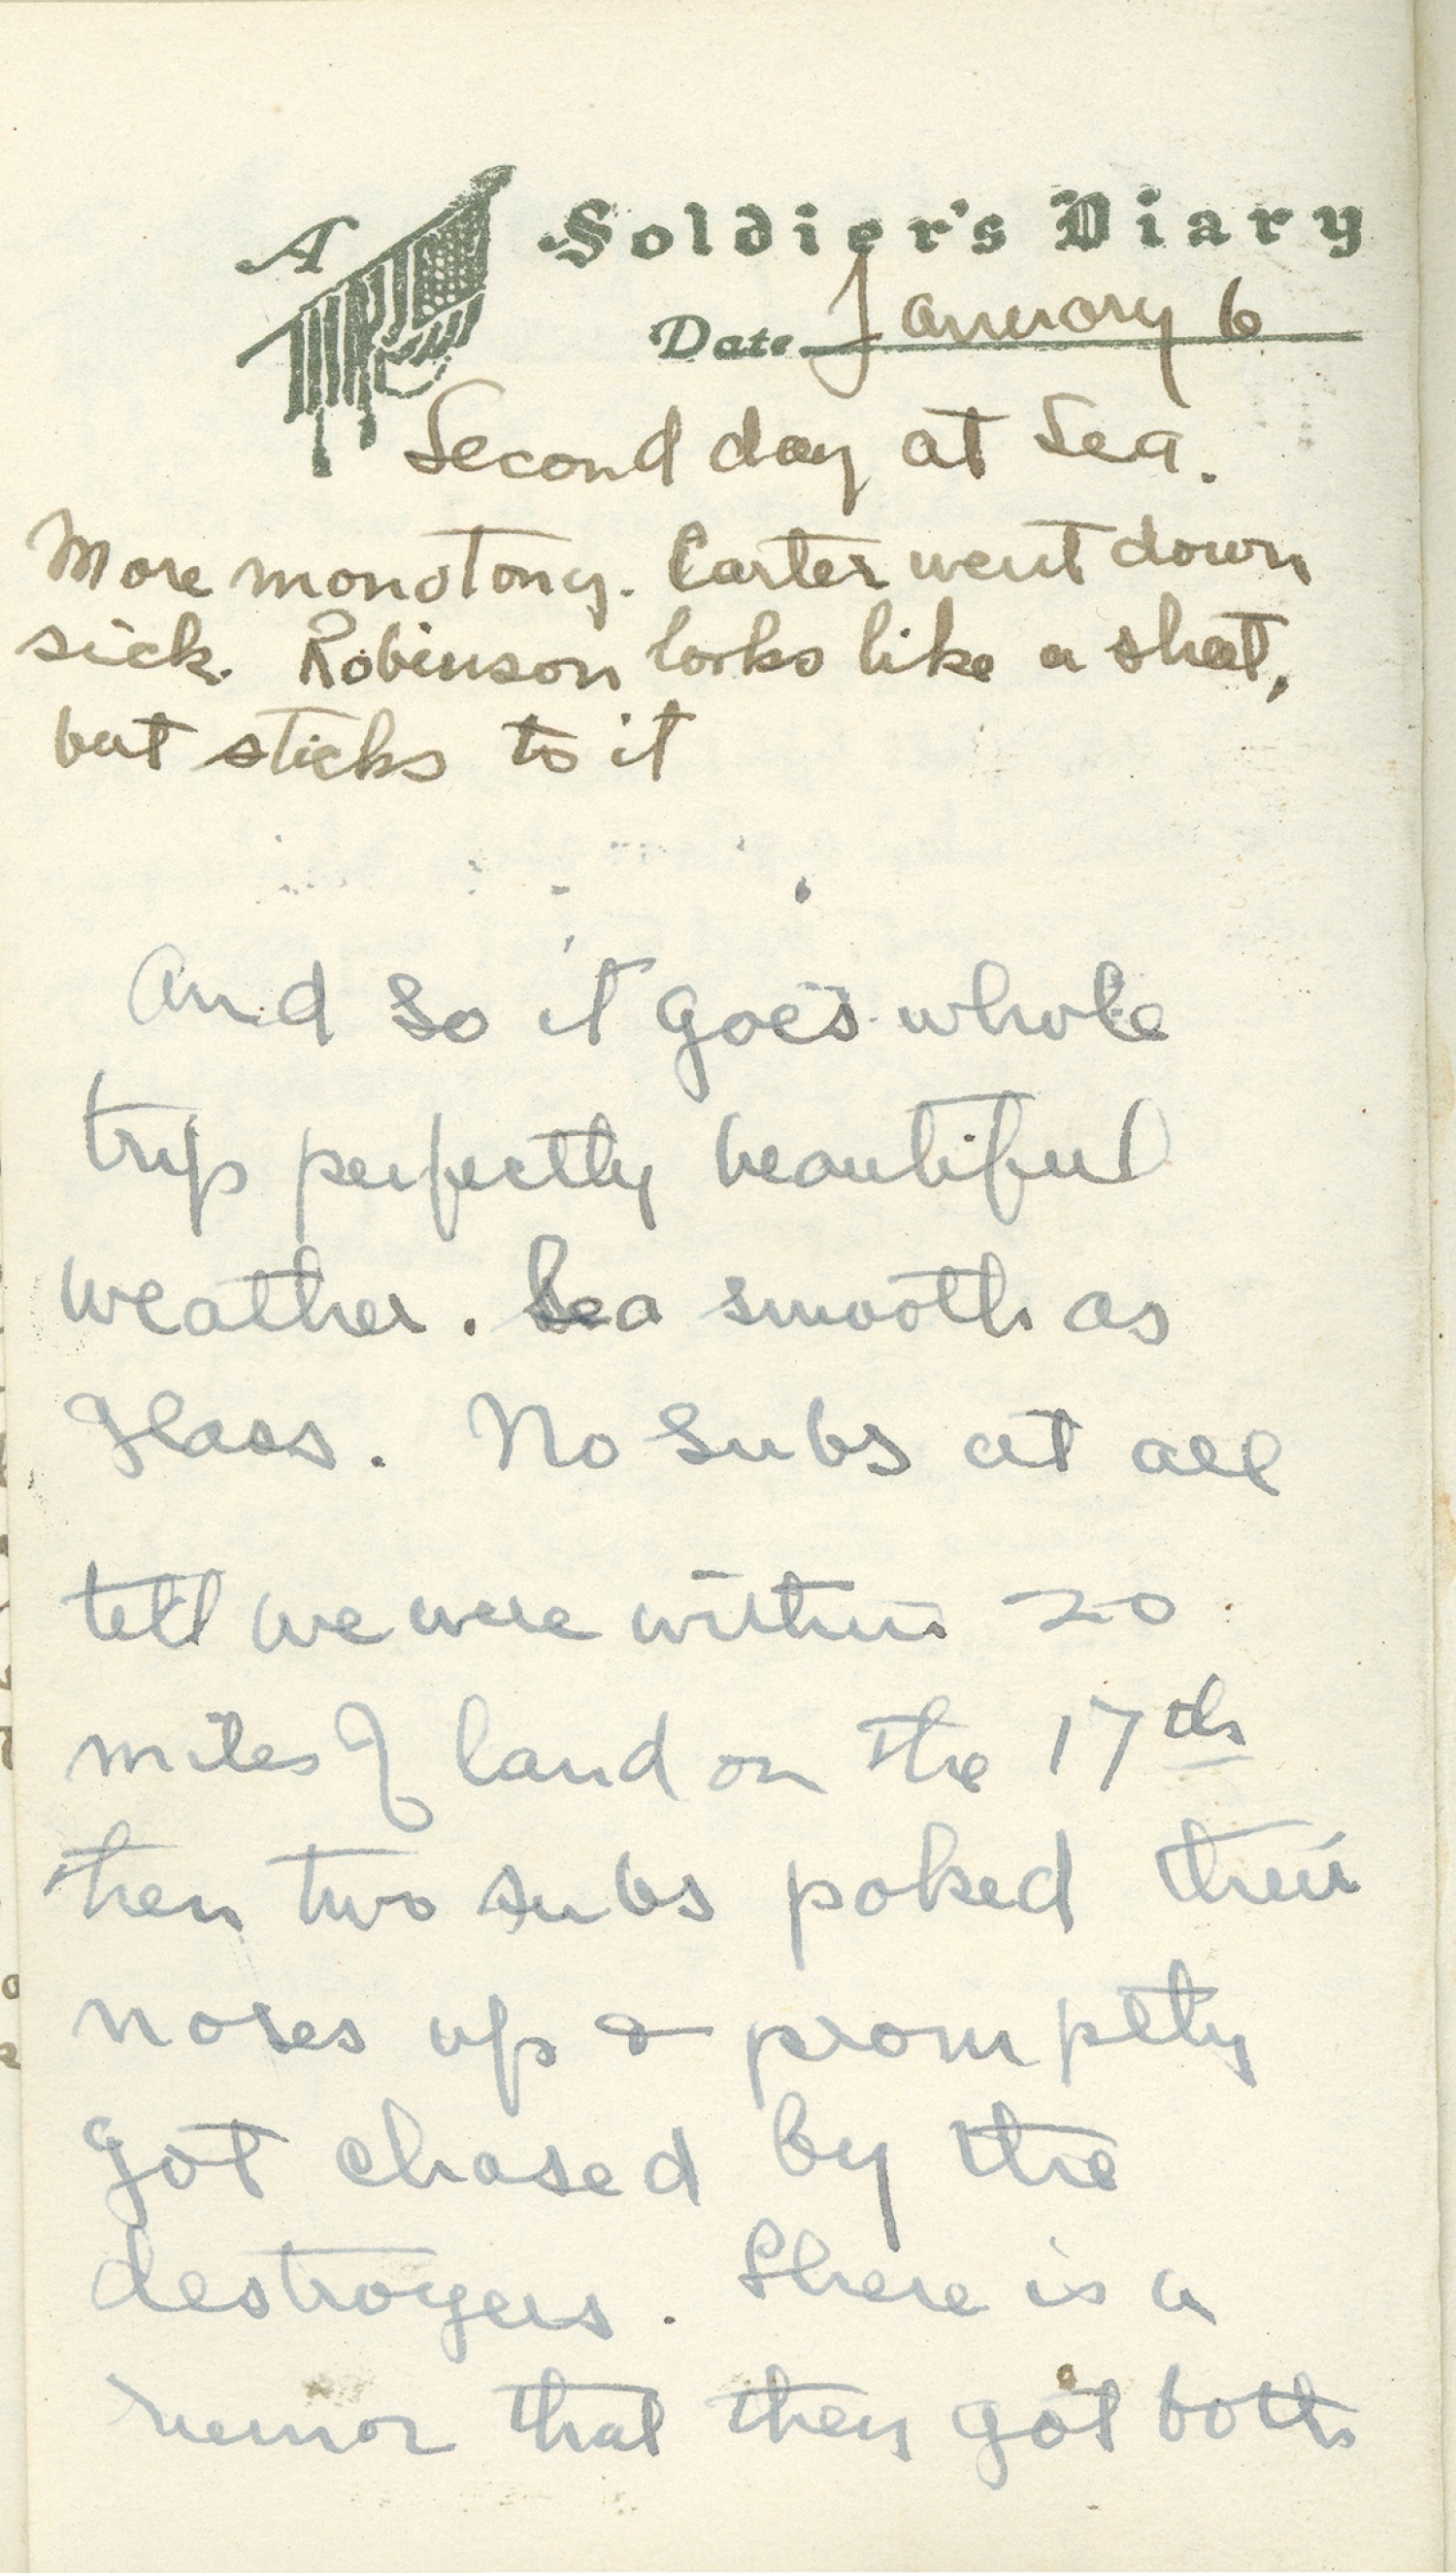 A Soldier's Diary
Date January 6
Second day at Sea.
More monotony. Carter went down
sick. Robinson looks like a sheet,
but sticks to it
And so it goes whole
trip perfectly beautiful
weather. Sea smooth as
glass. No Subs at all
till we were within 20
miles of land on the 17th
then two subs poked their
noses up & promptly
got chased by the
destroyers. There is a
rumor that they got both